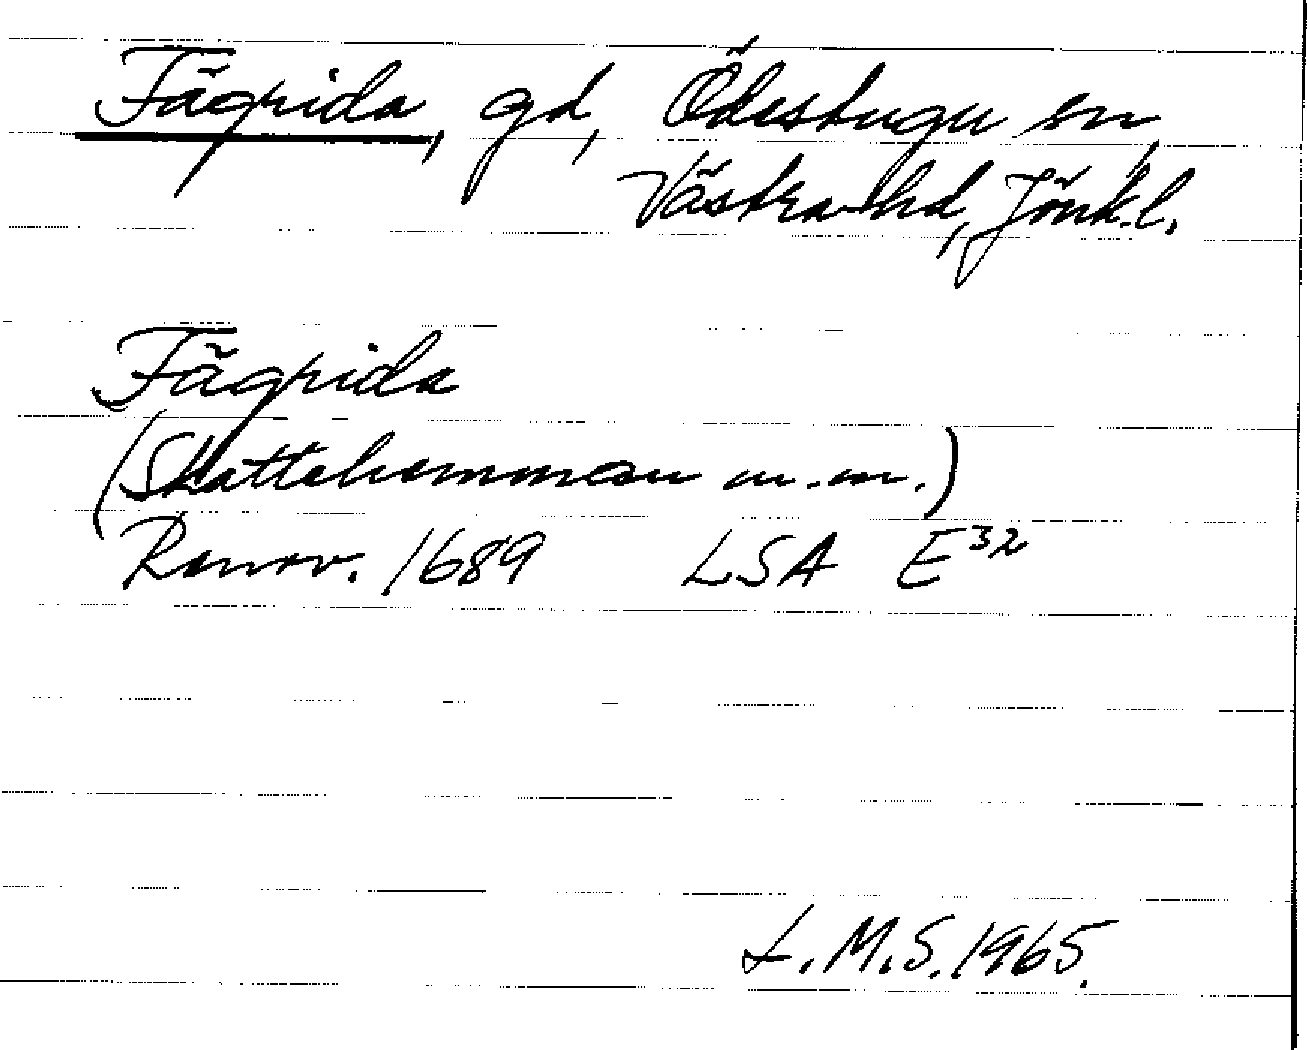 Fägrida, gd, Ödestugu sn
Västra hd, Jönk.l.
Fägrida
(Skattehemman m.m.)
Renov. 1689 LSA E32
L.M.S. 1965.